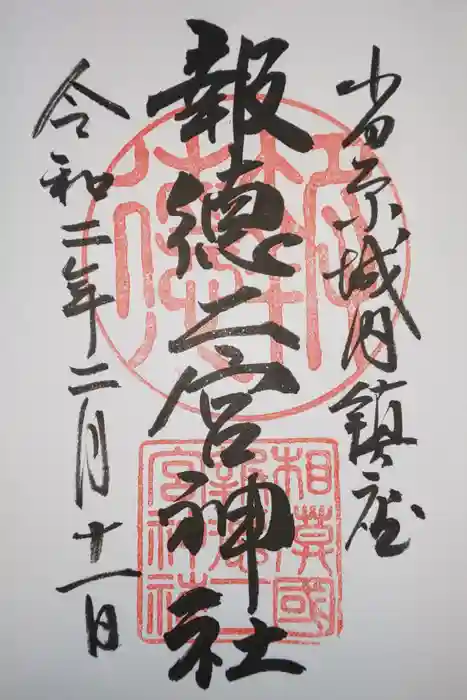 小田原城内鎮座
報徳二宮神社
令和二年二月十一日
相莫國
報徳二
宮神社